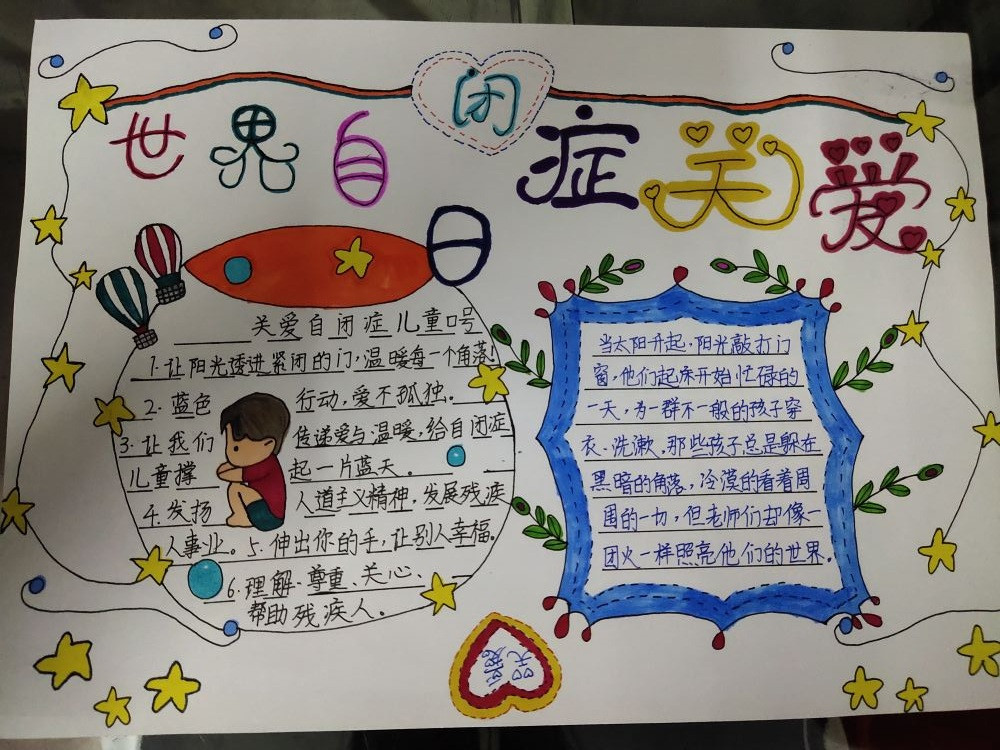 世界自闭症关爱
日
关爱自闭症儿童口号
1.让阳光透进紧闭的门,温暖每一个角落!
2.蓝色行动,爱不孤独。
3.让我们传递爱与温暖,给自闭症
儿童撑起一片蓝天。
4.发扬人道主义精神,发展残疾
人事业。5.伸出你的手,让别人幸福。
6.理解·尊重、关心、
帮助残疾人。
当太阳升起,阳光敲打门
窗,他们起床开始忙碌的
一天,为一群不一般的孩子穿
衣、洗漱,那些孩子总是躲在
黑暗的角落,冷漠的看着周
围的一切,但老师们却像一
团火一样照亮他们的世界。
关爱